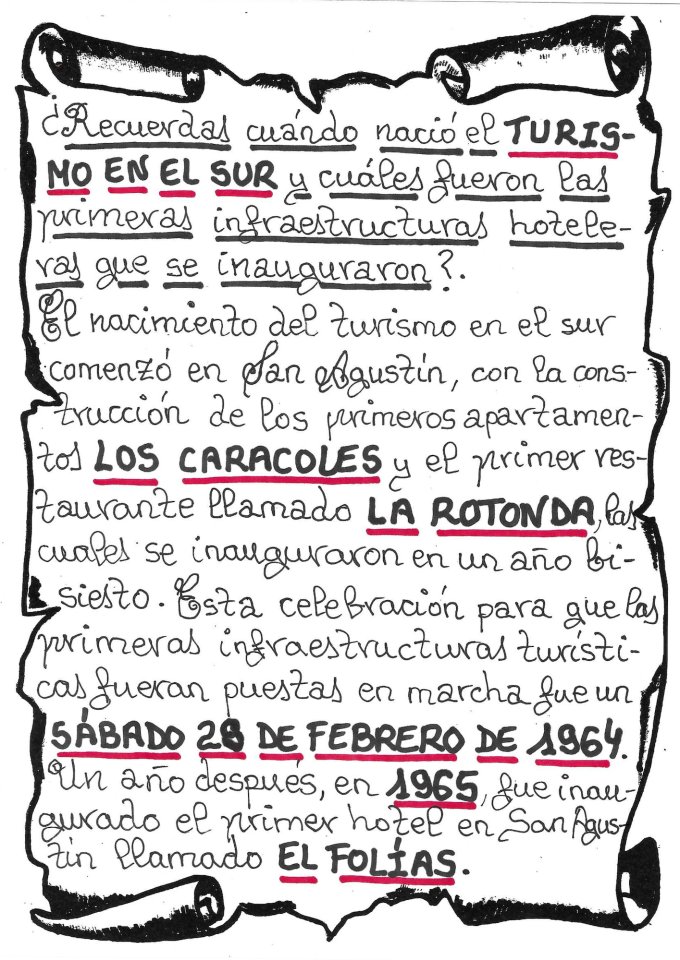 ¿Recuerdas cuándo nació el TURIS-
MO EN EL SUR y cuáles fueron las
primeras infraestructuras hotele-
ras que se inauguraron?.
El nacimiento del turismo en el sur
comenzó en San Agustín, con la cons-
trucción de los primeros apartamen-
tos LOS CARACOLES y el primer res-
taurante llamado LA ROTONDA, las
cuales se inauguraron en un año bi-
siesto. Esta celebración para que las
primeras infraestructuras turísti-
cas fueran puestas en marcha fue un
SÁBADO 28 DE FEBRERO DE 1964.
Un año después, en 1965, fue inau-
gurado el primer hotel en San Agus-
tín llamado EL FOLÍAS.